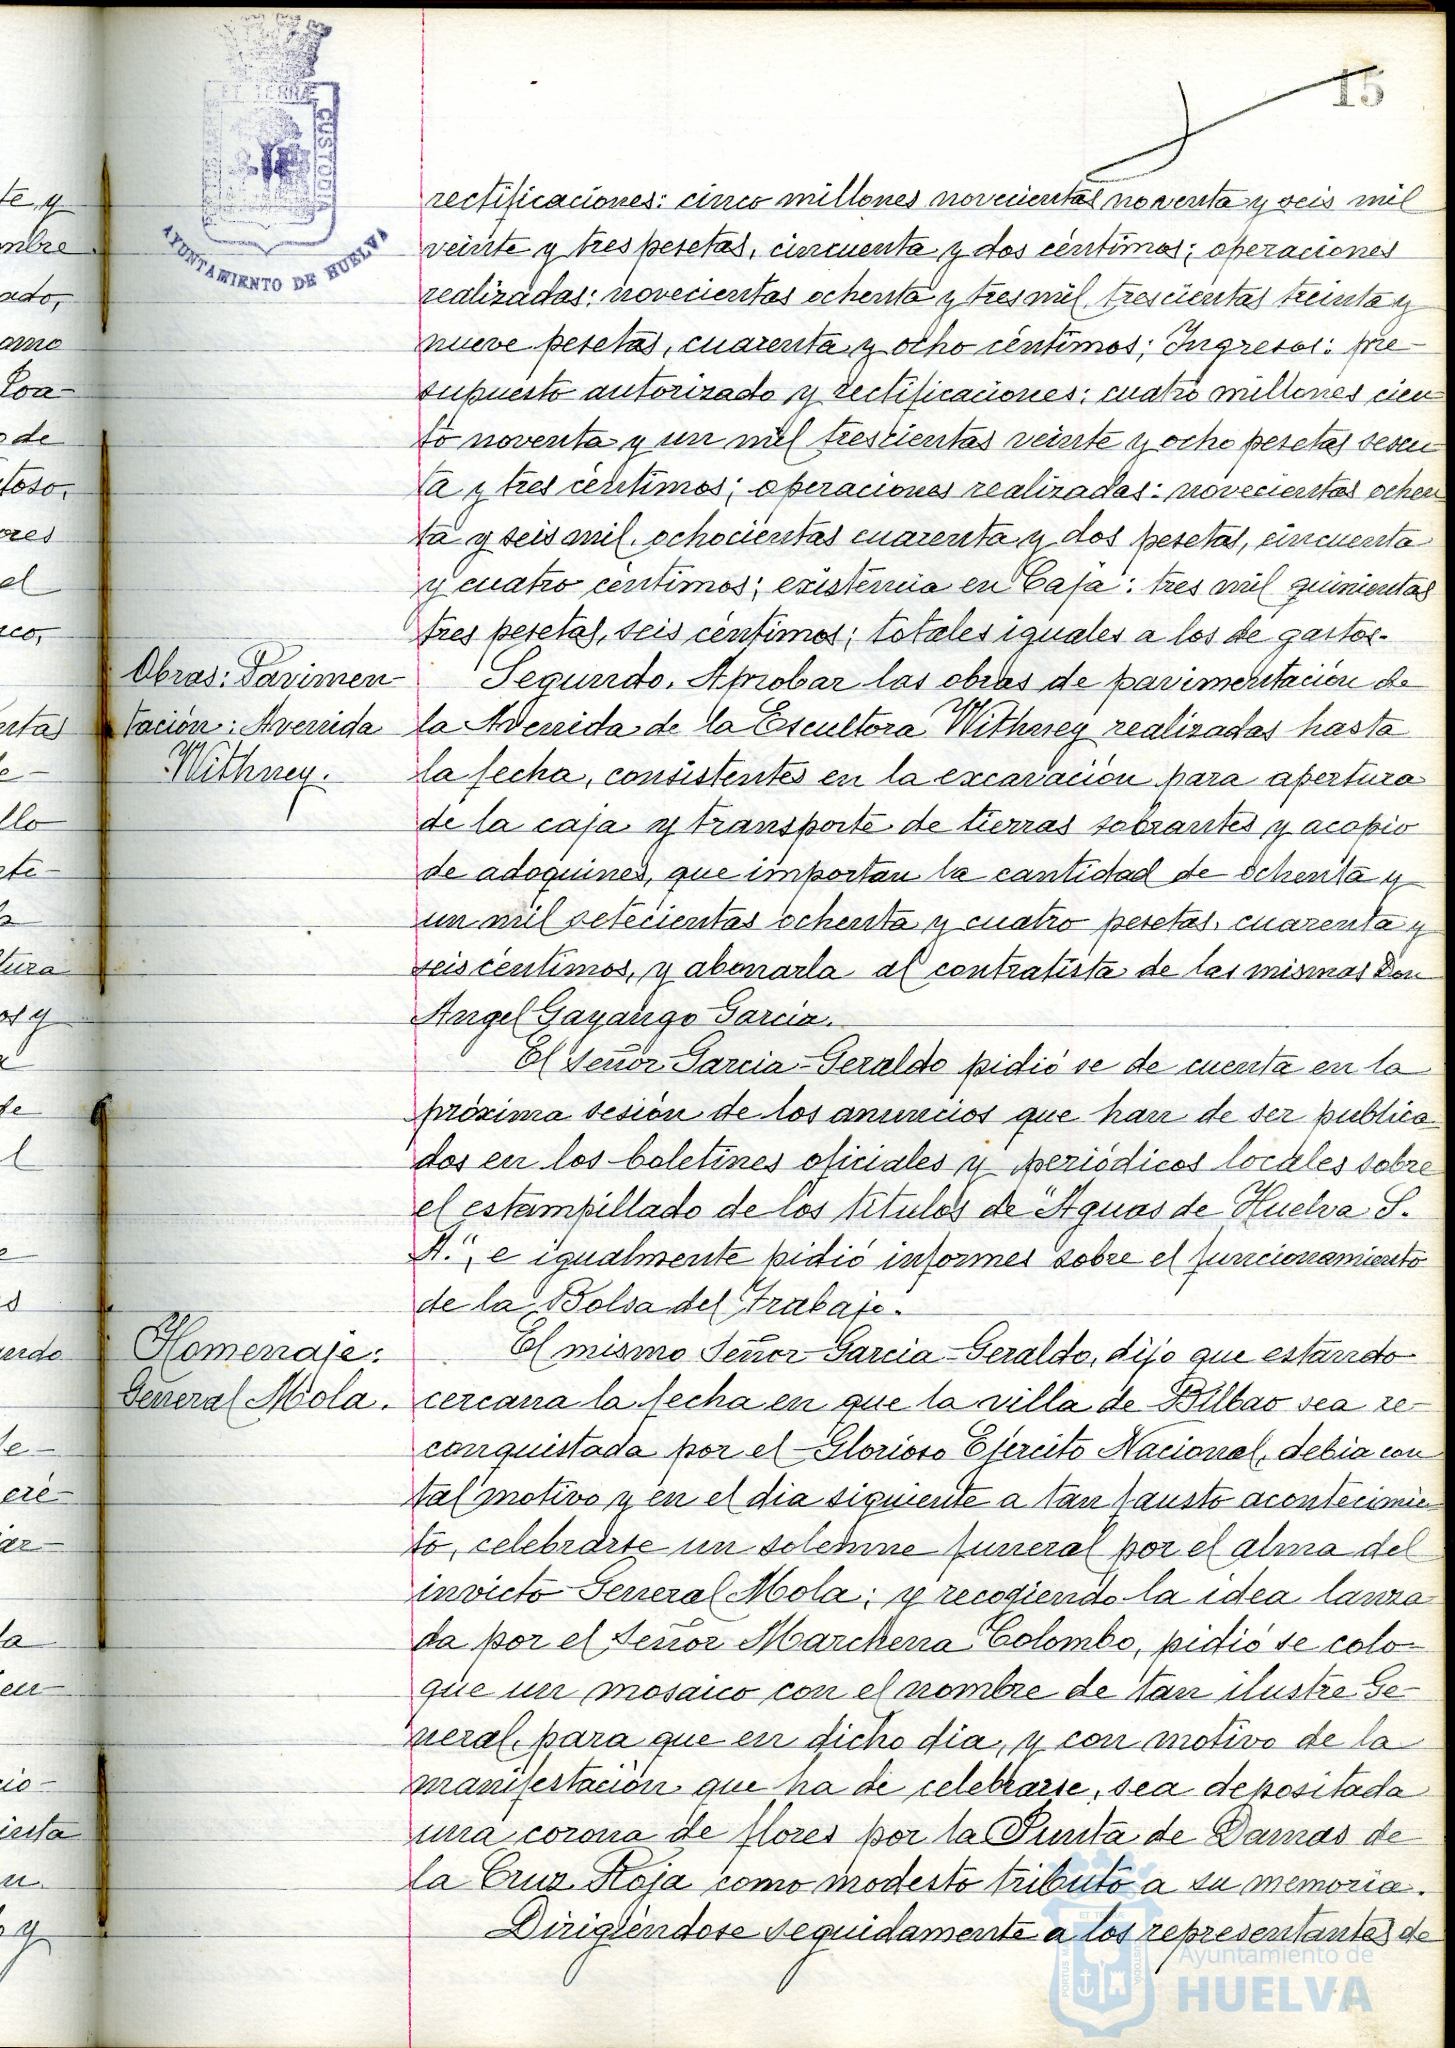 15
PORTUS MARIS ET TERRÆ CUSTODIA
AYUNTAMIENTO DE HUELVA
rectificaciones: cinco millones novecientas noventa y seis mil
veinte y tres pesetas, cincuenta y dos céntimos; operaciones
realizadas: novecientas ochenta y tres mil, trescientas treinta y
nueve pesetas, cuarenta y ocho céntimos; Ingresos: pre-
supuesto autorizado y rectificaciones: cuatro millones cien-
to noventa y un mil trescientas veinte y ocho pesetas sesen-
ta y tres céntimos; operaciones realizadas: novecientas ochen-
ta y seis mil, ochocientas cuarenta y dos pesetas, cincuenta
y cuatro céntimos; existencia en Caja: tres mil quinientas
tres pesetas, seis céntimos; totales iguales a los de gastos.-
Obras: Pavimen-
tación: Avenida
Withney.
Segundo. Aprobar las obras de pavimentación de
la Avenida de la Escultora Withney realizadas hasta
la fecha, consistentes en la excavación para apertura
de la caja y transporte de tierras sobrantes y acopio
de adoquines, que importan la cantidad de ochenta y
un mil setecientas ochenta y cuatro pesetas, cuarenta y
seis céntimos, y abonarla al contratista de las mismas Don
Angel Gayango Garcia.
El Señor Garcia-Geraldo pidió se de cuenta en la
próxima sesión de los anuncios que han de ser publica-
dos en los boletines oficiales y periódicos locales sobre
el estampillado de los títulos de "Aguas de Huelva S.
A.", e igualmente pidió informes sobre el funcionamiento
de la Bolsa del Trabajo.
Homenaje:
General Mola.
El mismo Señor Garcia-Geraldo, dijo que estando
cercana la fecha en que la villa de Bilbao sea re-
conquistada por el Glorioso Ejército Nacional, debia con
tal motivo y en el dia siguiente a tan fausto acontecimien-
to, celebrarse un solemne funeral por el alma del
invicto General Mola; y recogiendo la idea lanza-
da por el Señor Marchena Colombo, pidió se colo-
que un mosaico con el nombre de tan ilustre Ge-
neral, para que en dicho dia, y con motivo de la
manifestación que ha de celebrarse, sea depositada
una corona de flores por la Junta de Damas de
la Cruz Roja como modesto tributo a su memoria.
Dirigiéndose seguidamente a los representantes de
Ayuntamiento de
HUELVA